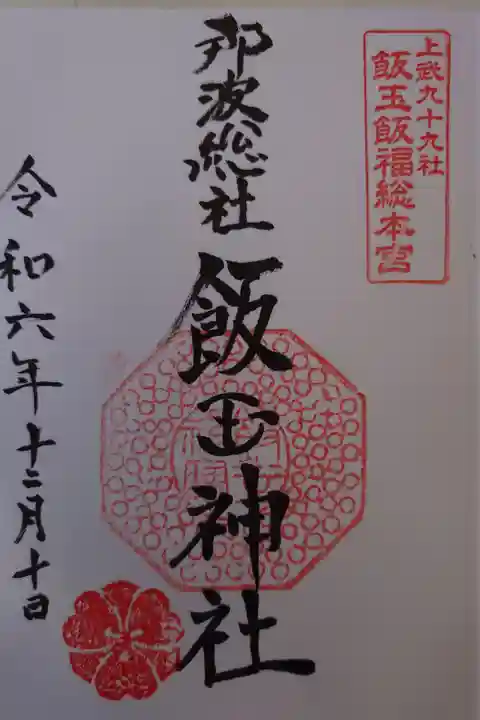 上武九十九社
飯玉飯福総本宮
那波総社
飯玉神社
令和六年十二月十日